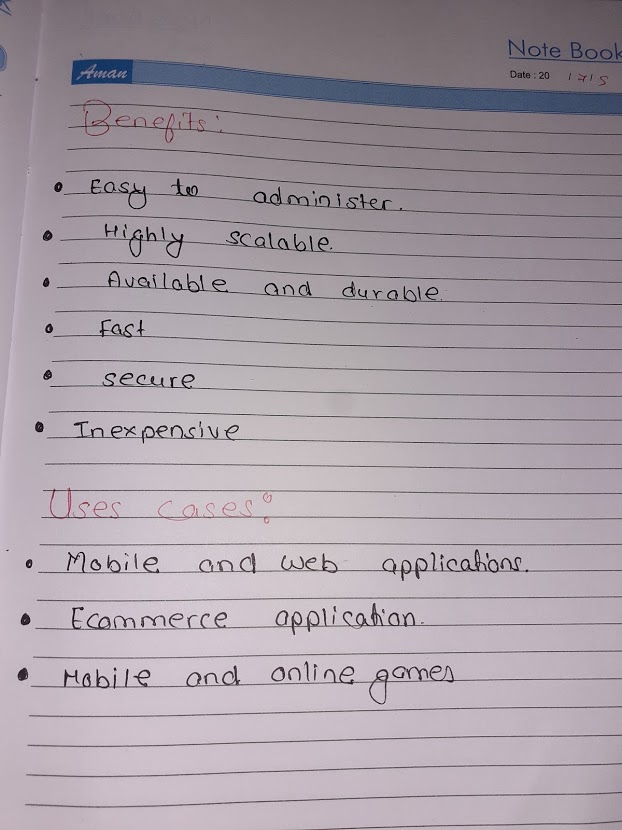 Note Book
Aman
Date : 20 17/5
Benefits:
• Easy to administer.
• Highly scalable.
• Available and durable.
• Fast
• secure
• Inexpensive
Uses cases:
• Mobile and web applications.
• Ecommerce application.
• Mobile and online games